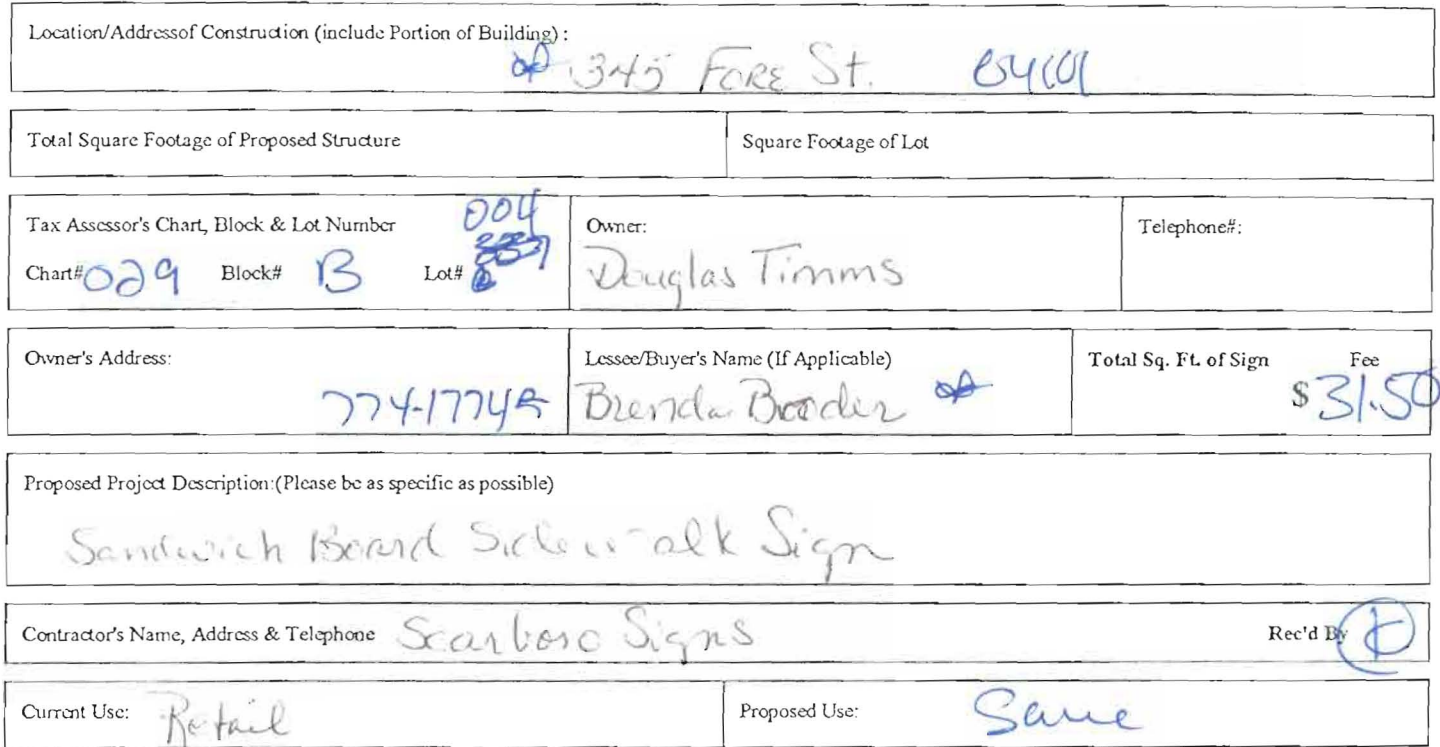 Location/Addressof Construction (include Portion of Building) :
345 FORE St. 04101
Total Square Footage of Proposed Structure
Square Footage of Lot
Tax Assessor's Chart, Block & Lot Number
004
Chart# 029 Block# B Lot#
Owner:
Douglas Timms
Telephone#:
Owner's Address:
774-1774
Lessee/Buyer's Name (If Applicable)
Brenda
Total Sq. Ft. of Sign Fee
$ 31.50
Proposed Project Description:(Please be as specific as possible)
Sandwich Board Sidewalk Sign
Contractor's Name, Address & Telephone Scarboro Signs Rec'd By K
Current Use: Retail
Proposed Use: Same